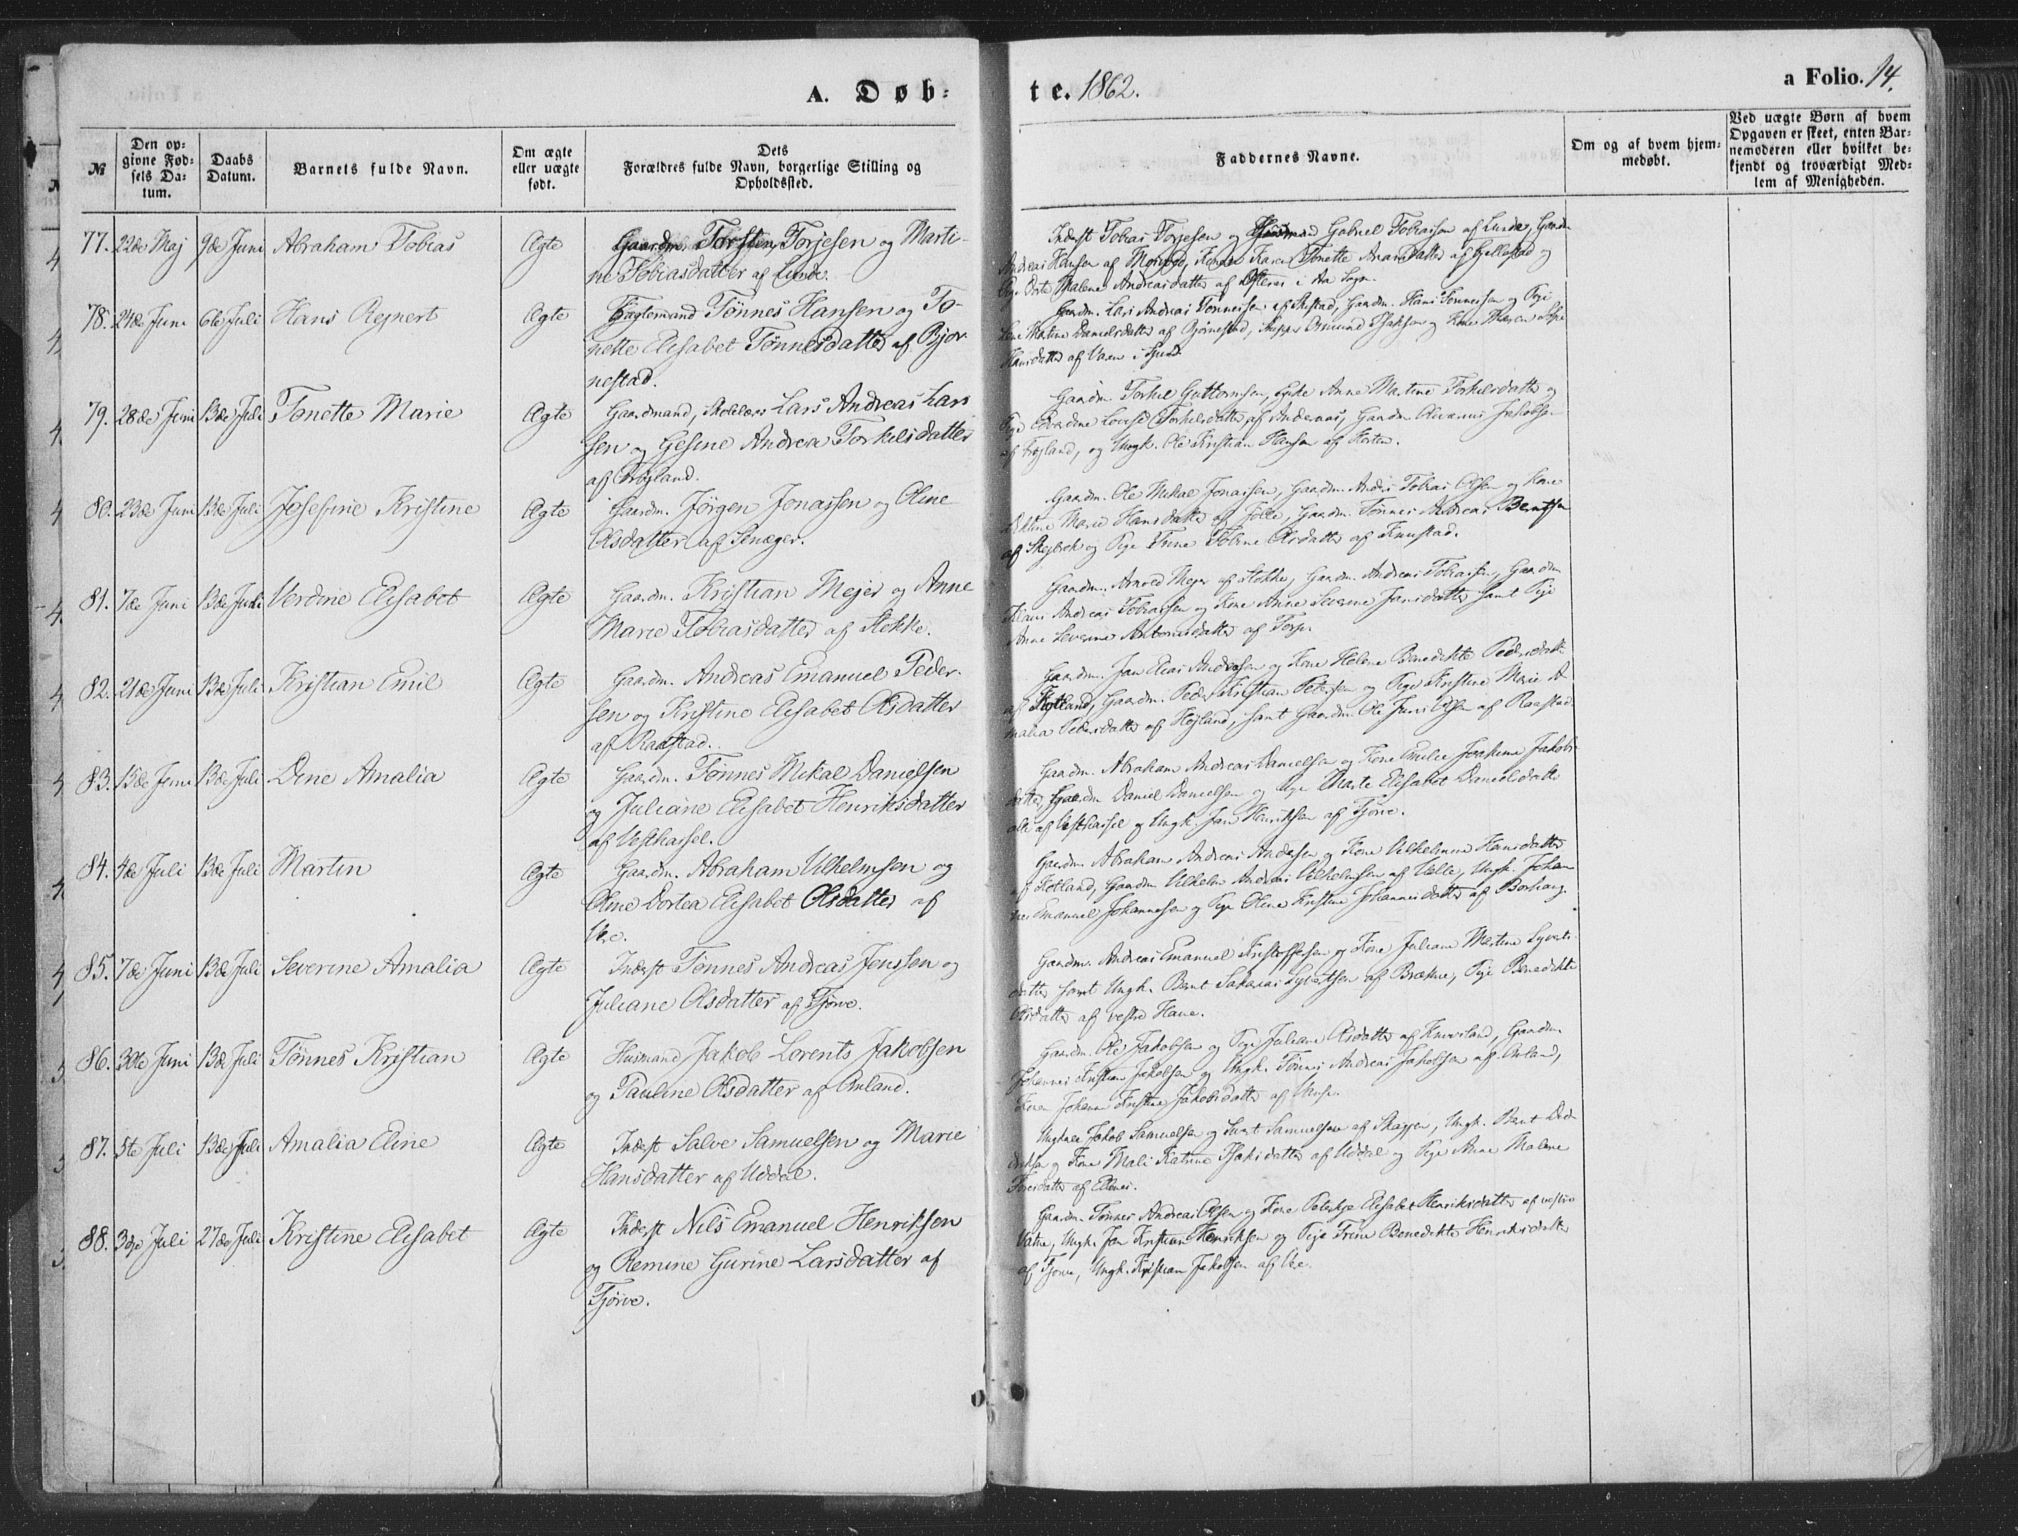 A. Døb-
te. 1862.
a Folio. 14.
№
Den op-
givne Fød-
sels Da-
tum.
Daabs
Datum.
Barnets fulde Navn.
Om ægte
eller uægte
født.
Dets
Forældres fulde Navn, borgerlige Stilling og
Opholdssted.
Faddernes Navne.
Om og af hvem hjem-
medøbt.
Ved uægte Børn af hvem
Opgaven er skeet, enten Bar-
nemoderen eller hvilket be-
kjendt og troværdigt Med-
lem af Menigheden.
77. 22de Maj 9de Juni Abraham Tobias Ægte Gaardm. Torsten Torjesen og Marti-
ne Tobiasdatter af Lunde.
Inderst Tobias Torjesen og Gabriel Tobiassen af Lunde, Gaardm.
Andreas Hansen af Kone Karen Tonette
Malene Andreasdatter af i Aa Sogn.
78. 24de Juni 6te Juli Hans Rejnert Ægte Tønnes Hansen og To-
nette Elisabet Tønnesdatter af Bjør-
nestad.
Gaardm. Lars Andreas Tønnessen af Gaardm. Hans Tønnessen og Pige
Lene Martine Danielsdatter af Bjørnestad, Skipper Osmund Isaksen og Kone
Hansdatter af
79. 28de Juni 13de Juli Tonette Marie Ægte Gaardmand, Skolelærer Lars Andreas Lar-
sen og Gesine Andrea Torkelsdatter
af
Gaardm. Torkel Guttormsen, Anne Martine Torkelsdatter og
Pige Lovise Torkelsdatter af Gaardm. Jakobsen
af og Ungk. Ole Kristian Hansen af
80. 23de Juni 13de Juli Josefine Kristine Ægte Gaardm. Jørgen Jonassen og Oline
Olsdatter af
Gaardm. Ole Mikal Jonassen, Gaardm. Tobias Olsen og Kone
Marie Hansdatter af Gaardm. Tønnes Andreas Berntsen
af og Pige Trine Olsdatter af
81. 7de Juni 13de Juli Verdine Elisabet Ægte Gaardm. Kristian Mejer og Anne
Marie Tobiasdatter af Stokke.
Gaardm. Arnold Mejer af Stokke, Gaardm. Andreas Tobiassen, Gaardm.
Andreas Tobiassen og Kone Anne Severine Jansdatter samt Pige
Anne Severine af Torp.
82. 21de Juni 13de Juli Kristian Emil Ægte Gaardm. Andreas Emanuel Peder-
sen og Kristine Elisabet Olsdatter
af Raastad.
Gaardm. Jan Elias Andersen og Kone Helene Benedikte Pedersdatter
af Gaardm. Peder Kristian Petersen og Pige Kristine Marie A-
malia Pedersdatter af Højland, samt Gaardm. Ole Olsen af Raastad.
83. 15de Juni 13de Juli Dine Amalia Ægte Gaardm. Tønnes Mikal Danielsen
og Juliane Elisabet Henriksdatter
af Vesthassel.
Gaardm. Abraham Andreas Danielsen og Kone Emilie Joakime Jakobs-
datter, Gaardm. Daniel Danielsen og Pige Marte Elisabet Danielsdatter
alle af Vesthassel og Ungk. Jan Henriksen af Tjørve.
84. 4de Juli 13de Juli Martin Ægte Gaardm. Abraham Vilhelmsen og
Oline Dortea Elisabet Olsdatter af
Ure.
Gaardm. Abraham Andreas Andersen og Kone Vilhelmine Hansdatter
af Gaardm. Vilhelm Andreas Vilhelmsen af Velle, Ungk. Johan-
nes Emanuel Johannesen og Pige Oline Kristine Johannesdatter af Borhaug.
85. 7de Juni 13de Juli Severine Amalia Ægte Inderst Tønnes Andreas Jenssen og
Juliane Olsdatter af Tjørve.
Gaardm. Andreas Emanuel Kristoffersen og Kone Juliane Martine Syverts-
datter samt Ungk. Bernt Sakarias Syvertsen af Brække, Pige Benedikte
Olsdatter af vestre Hauge.
86. 30te Juni 13de Juli Tønnes Kristian Ægte Husmand Jakob Lorents Jakobsen
og Pauline Olsdatter af Ørland.
Gaardm. Ole Jakobsen og Pige Juliane Olsdatter af Gaardm.
Johannes Kristian Jakobsen og Ungk. Tønnes Andreas Jakobsen af Ørland,
Kone Johanne Kristine Jakobsdatter af Vanse.
87. 5te Juli 13de Juli Amalia Eline Ægte Inderst Salve Samuelsen og Marie
Hansdatter af Uddal.
Ungkar Jakob Samuelsen og Samuelsen af Ungk. Bernt Did-
riksen og Kone Mali Katrine Isaksdatter af Uddal og Pige Anne Malene
af Ellenes.
88. 3dje Juli 27de Juli Kristine Elisabet Ægte Inderst Nils Emanuel Henriksen
og Remine Gurine Larsdatter af
Tjørve.
Gaardm. Tønnes Andreas Olsen og Kone Elisabet Henriksdatter af vestre
Vatne, Ungk. Jan Kristian Henriksen og Pige Trine Benedikte Henriksdatter
af Tjørve, Ungk. Kristian Jakobsen af Ure.